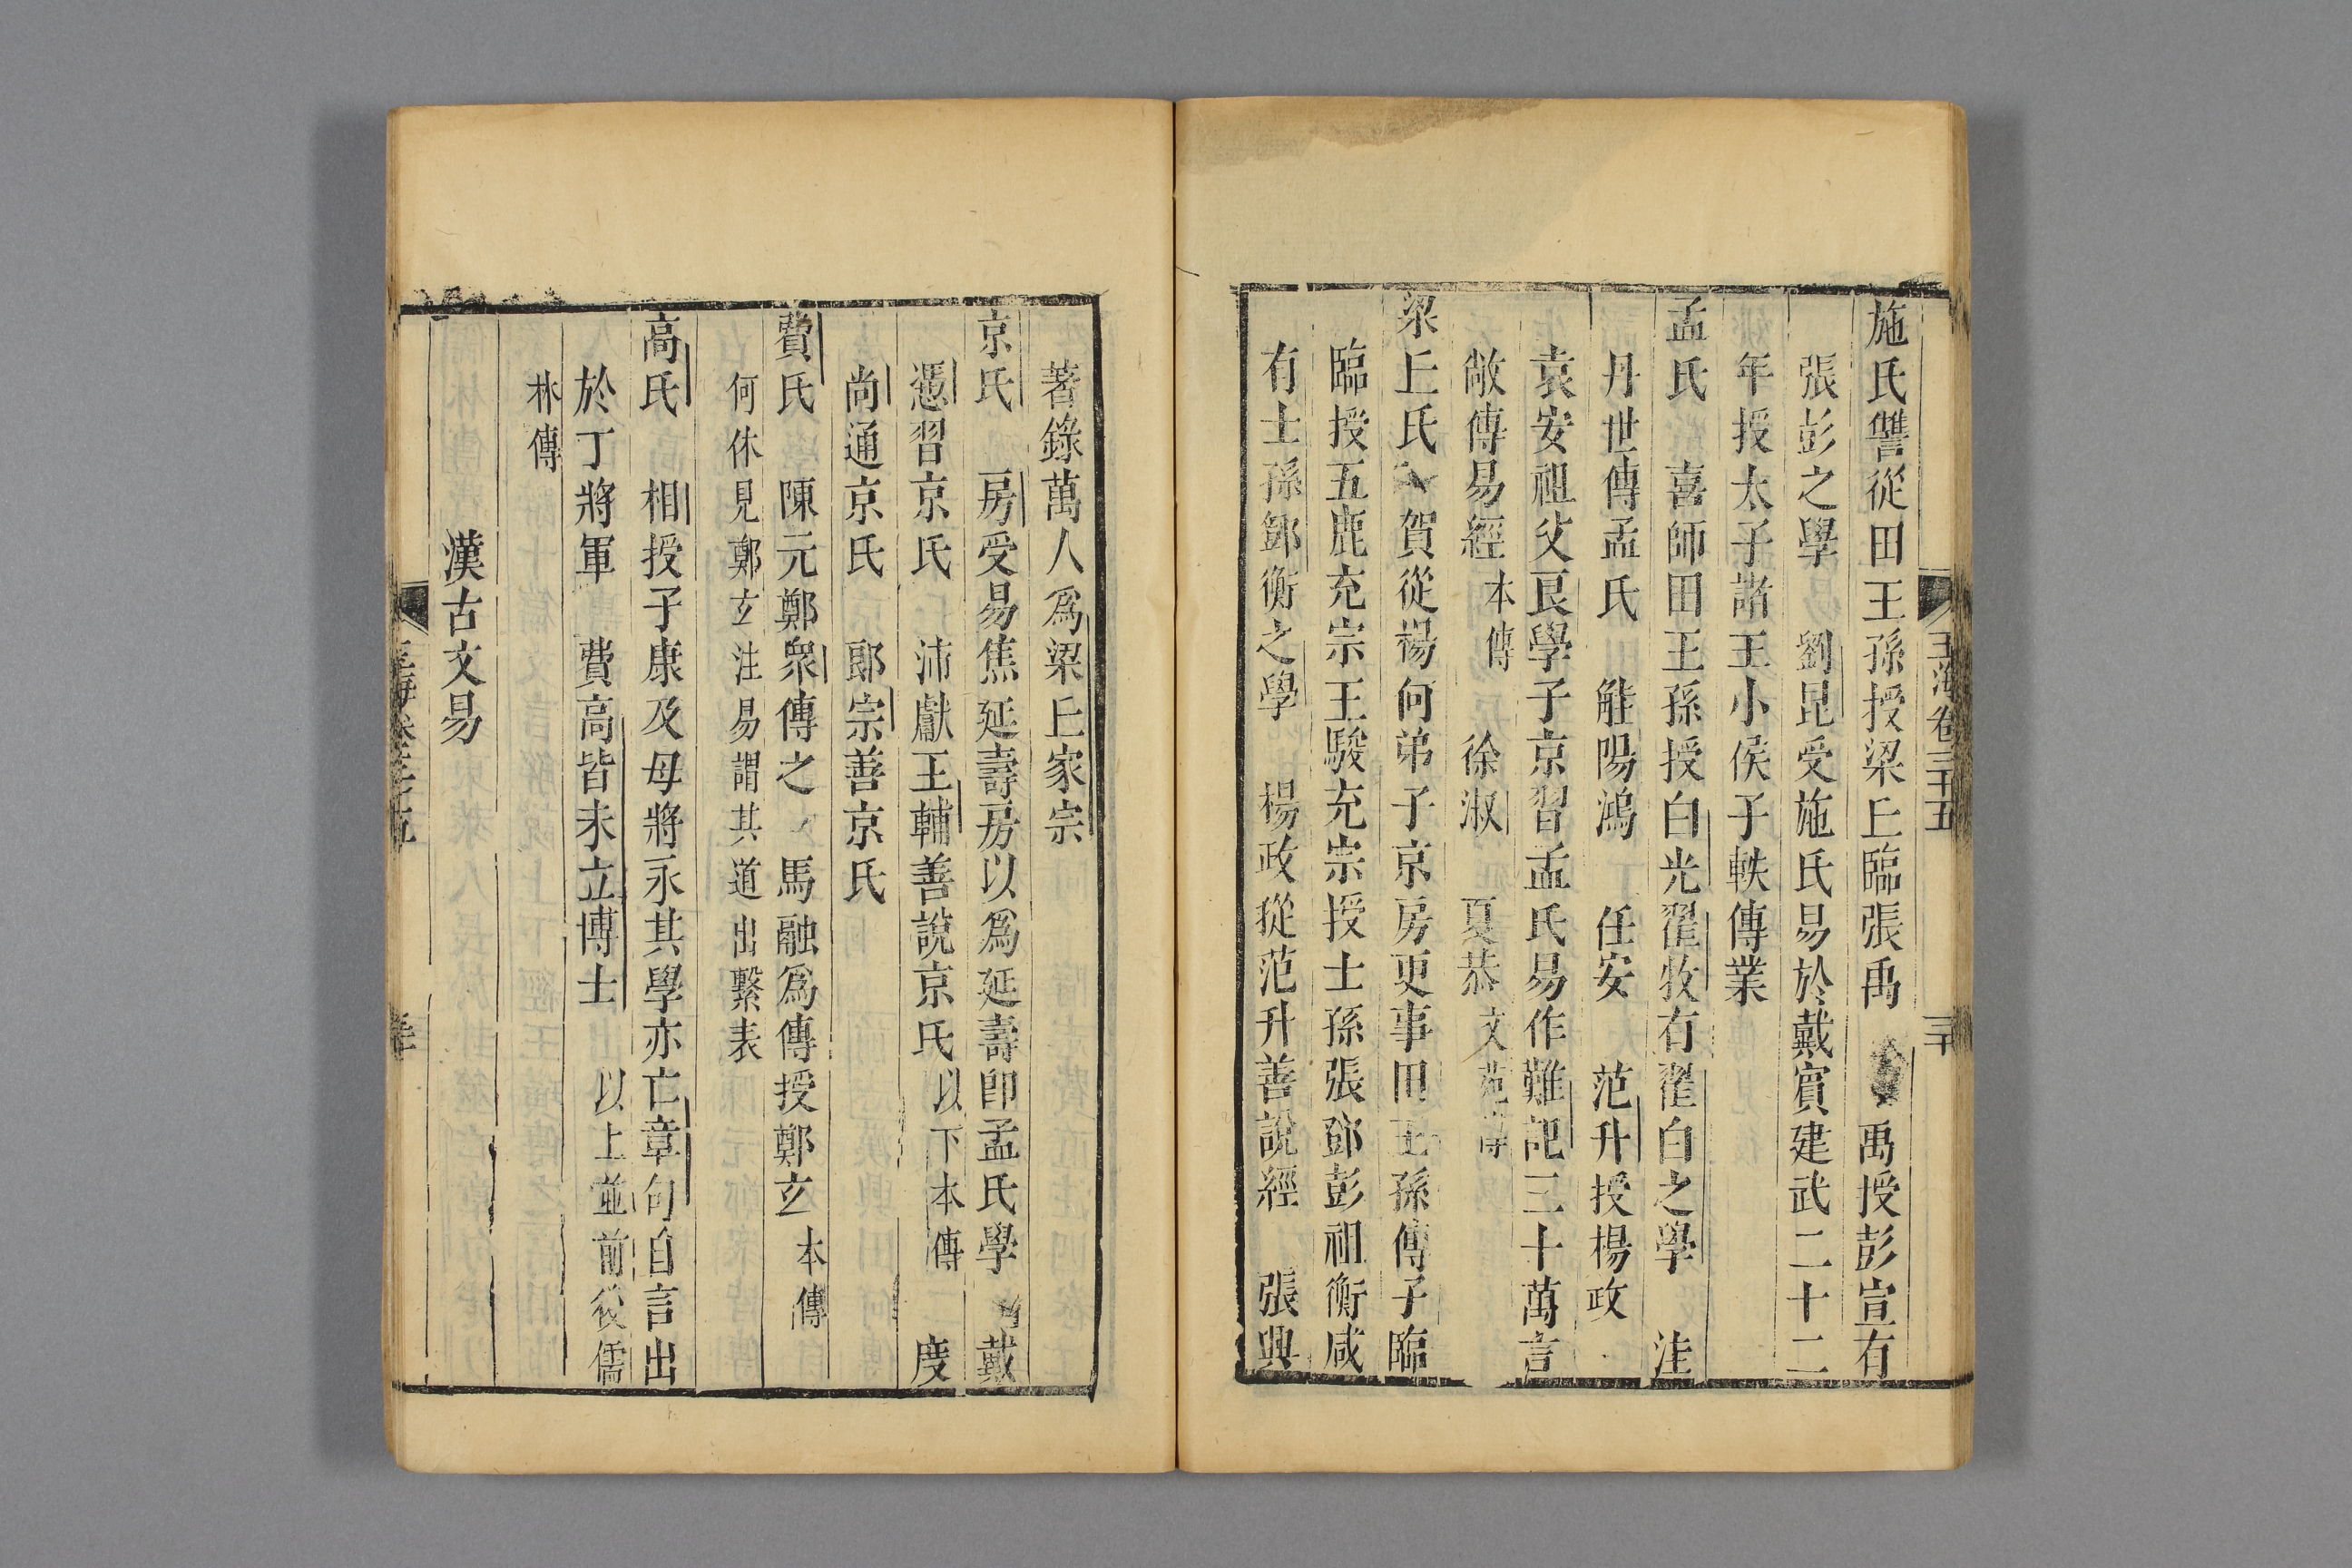 玉海卷三十五
三十
施氏讐從田王孫授梁丘臨張禹 禹授彭宣有
張彭之學 劉昆受施氏易於戴賓建武二十二
年授太子諸王小侯子軼傳業
孟氏 喜師田王孫授白光翟牧有翟白之學 洼
丹世傳孟氏 觟陽鴻 任安 范升授楊政
袁安祖父良學子京習孟氏易作難記三十萬言
敞傳易經本傳 徐淑 夏恭文苑傳
梁丘氏 賀從楊何弟子京房更事田王孫傳子臨
臨授五鹿充宗王駿充宗授士孫張鄧彭祖衡咸
有士孫鄧衡之學 楊政從范升善說經 張興
著錄萬人爲梁丘家宗
京氏 房受易焦延壽房以爲延壽卽孟氏學 戴
憑習京氏 沛獻王輔善說京氏以下本傳 度
尚通京氏 郎宗善京氏
費氏 陳元鄭衆傳之 馬融爲傳授鄭玄本傳
何休見鄭玄注易謂其道出繫表
高氏 相授子康及毋將永其學亦亡章句自言出
於丁將軍 費高皆未立博士以上並前後儒
林傳
漢古文易